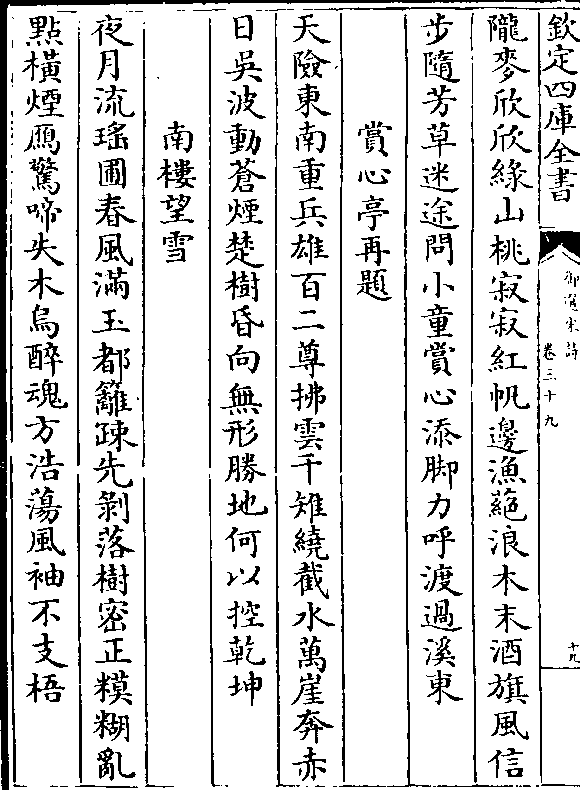 欽定四庫全書
御選宋詩
卷三十九
十九
隴麥欣欣綠山桃寂寂紅帆邊漁蕝浪木末酒旗風信
步隨芳草迷途問小童賞心添脚力呼渡過溪東
賞心亭再題
天險東南重兵雄百二尊拂雲千雉繞截水萬崖奔赤
日吳波動蒼煙楚樹昏向無形勝地何以控乾坤
南樓望雪
夜月流瑤圃春風滿玉都籬疎先剝落樹密正糢糊亂
點橫煙鴈驚啼失木烏醉魂方浩蕩風袖不支梧